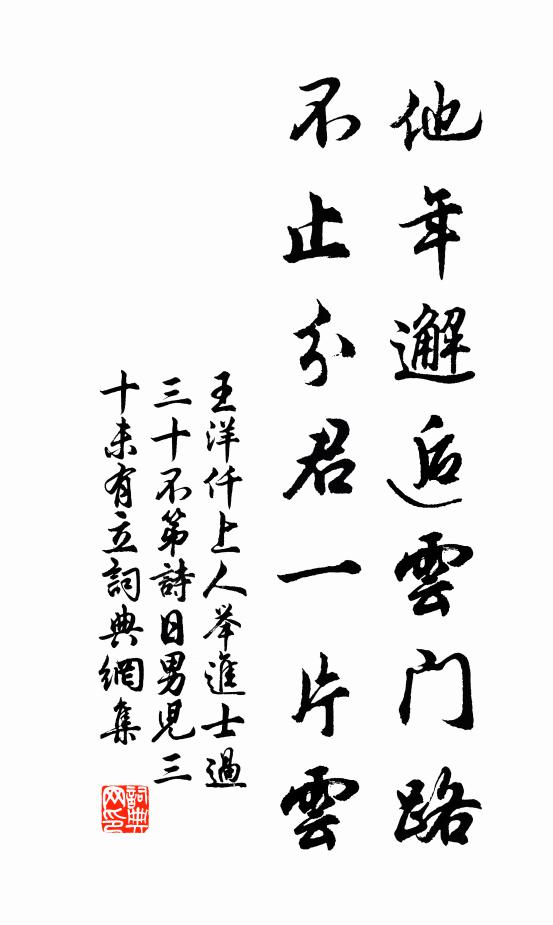 他年邂逅雲门路
不止分君一片雲
王洋仟上人举進士過
三十不第詩日男児三
十未有立詞典網集
詞典网印